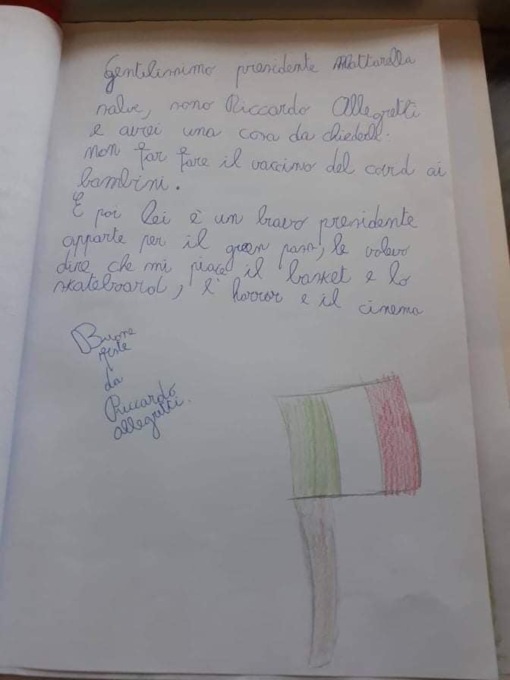 Gentilissimo presidente Mattarella
salve, sono Riccardo Allegretti
e avrei una cosa da chiederle:
non far fare il vaccino del covid ai
bambini.
E poi lei è un bravo presidente
apparte per il green pass, le volevo
dire che mi piace il basket e lo
skateboard, l'horror e il cinema
Buone
feste
da
Riccardo
allegretti.